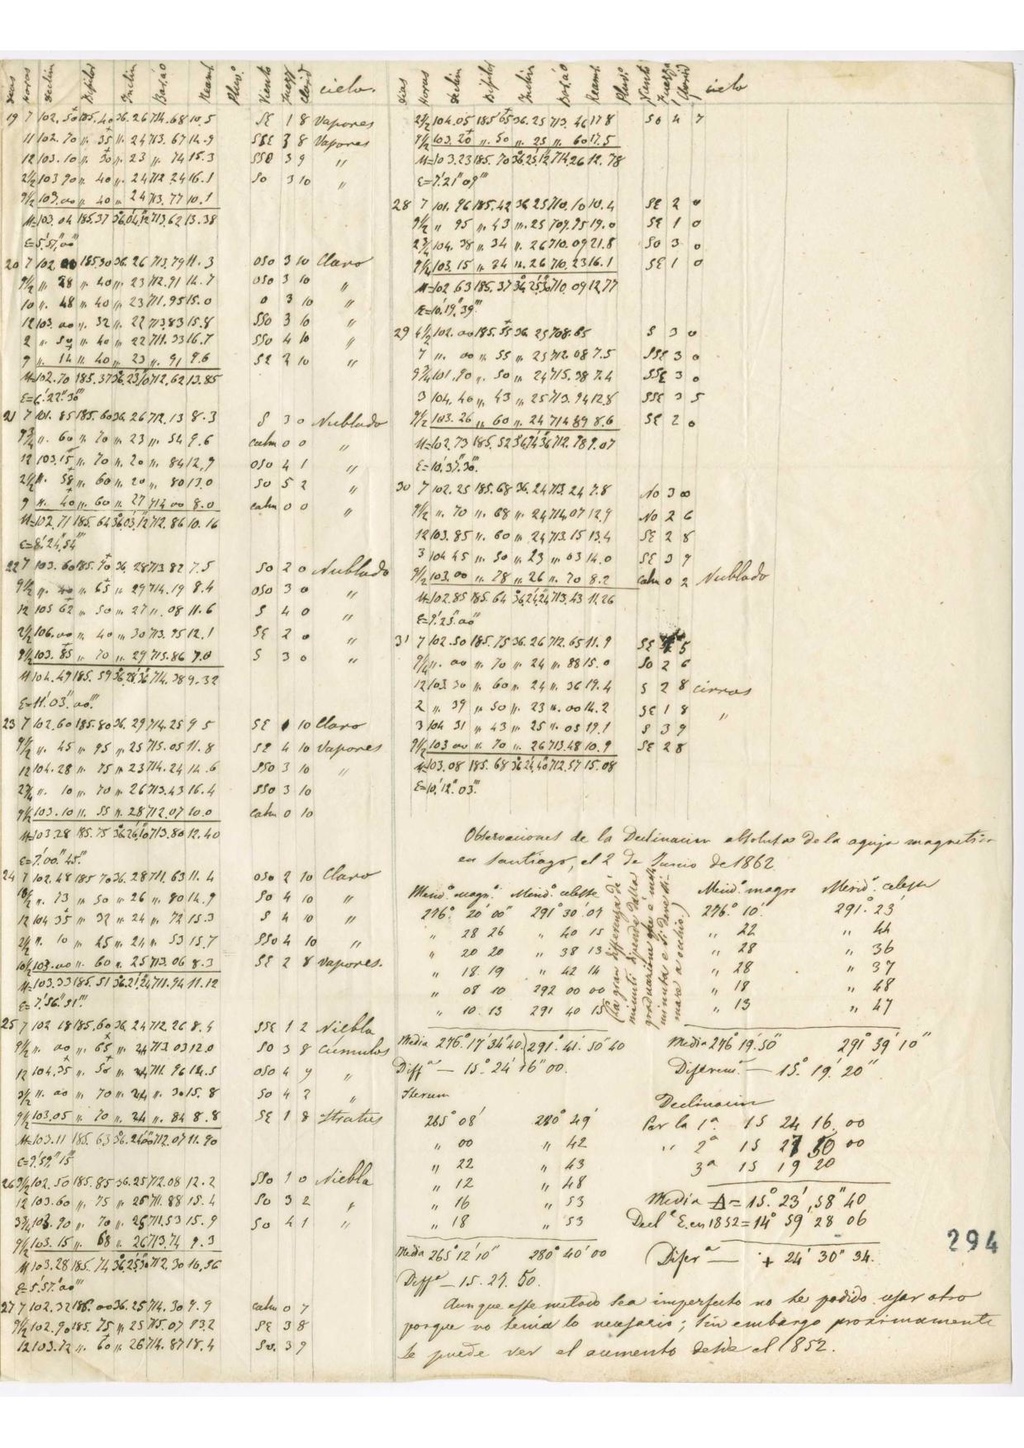 Dias Horas Declin Bifilar Inclin Baróo Reaml Pluvo Viento Fuerza Clarid cielo.
19 7 102. 50 185.40 36.26 714.68 10.5 SE 1 8 Vapores
11 102. 70 ,, 35 ,, 24 713.67 14.9 SSE 3 8 Vapores
12 103. 10 ,, 30 ,, 23 ,, 74 15.3 SSO 3 9 ,,
2½ 103 90 ,, 40 ,, 24 712 24 16.1 SO 3 10 ,,
9½ 103. 00 ,, 40 ,, 24 713.77 10.1
M=103. 04 185.37 713.62 13.38
E=5'.57".00'''
20 7 102 185.30 36.26 713.79 11.3 OSO 3 10 Claro
9½ ,, 28 ,, 40 ,, 23 712.91 14.7 OSO 3 10 ,,
10 ,, 48 ,, 40 ,, 23 711.95 15.0 O 3 10 ,,
12 103. 00 ,, 32 ,, 22 713.83 15.8 SSO 3 10 ,,
2 ,, 50 ,, 40 ,, 22 711.33 16.7 SSO 4 10 ,,
9 ,, 14 ,, 40 ,, 23 ,, 91 9.6 SE 2 10 ,,
M=102.70 185.37 712.62 13.85
E=6'.22".30'''
21 7 101. 85 185.60 36.26 712.13 8.3 S 3 0 Nublado
9¾ ,, 60 ,, 70 ,, 23 ,, 54 9.6 calm 0 0 ,,
12 103.15 ,, 70 ,, 20 ,, 84 12.9 OSO 4 1 ,,
2½ ,, 58 ,, 60 ,, 20 ,, 80 13.0 SO 5 2 ,,
9 ,, 40 ,, 60 ,, 27 714 00 8.0 calm 0 0 ,,
M=102.71 185.64 712.86 10.16
E=8'.24".54'''
22 7 103. 60 185.70 36 28 713 82 7.5 SO 2 0 Nublado
9½ ,, ,, 65 ,, 29 714.19 8.4 OSO 3 0 ,,
12 105 62 ,, 50 ,, 27 ,, 08 11.6 S 4 0 ,,
2½ 106. 00 ,, 40 ,, 30 713. 95 12.1 SE 2 0 ,,
9½ 103. 85 ,, 70 ,, 29 715.86 7.0 S 3 0 ,,
M 104.49 185. 59 714.78 9.32
E=11'.03".00'''
23 7 102.60 185.80 36. 29 714.25 9 5 SE 10 Claro
9½ ,, 45 ,, 95 ,, 25 715.05 11.8 SE 4 10 Vapores
12 104.28 ,, 75 ,, 23 714.24 14.6 SSO 3 10 ,,
2¾ ,, 10 ,, 70 ,, 26 713.43 16.4 SSO 3 10
9½ 103.10 ,, 55 ,, 28 712.07 10.0 calm 0 10
M=103.28 185.75 713.80 12.40
E=7'.00".45'''
24 7 102.48 185 70 36.28 711.63 11.4 OSO 2 10 Claro
10½ ,, 73 ,, 50 ,, 26 ,, 80 14.9 SO 4 10 ,,
12 104 35 ,, 32 ,, 24 ,, 72 15.3 S 4 10 ,,
2½ ,, 10 ,, 25 ,, 24 ,, 53 15.7 SSO 4 10 ,,
10½ 103.00 ,, 60 ,, 25 713.06 8.3 SE 2 8 Vapores.
M=103.33 185.51 711.94 11.12
E=7'.56".31'''
25 7 102 18 185.60 36 24 712 26 8.4 SSE 1 2 Niebla
9½ ,, 00 ,, 65 ,, 24 713 03 12.0 SO 3 8 Cúmulos
12 104.35 ,, 50 ,, 24 711.96 14.5 OSO 4 9 ,,
3½ ,, 00 ,, 70 ,, 24 ,, 30 15.8 SO 4 2 ,,
9½ 103.05 ,, 70 ,, 24 ,, 84 8.8 SE 1 8 Stratus
M=103.11 185.63 712.07 11.90
E=7'.59".15'''
26 9½ 102.50 185.85 36.25 712.08 12.2 SSO 1 0 Niebla
12 103.60 ,, 75 ,, 25 711.88 15.4 SO 3 2 ,,
3¾ 103.90 ,, 70 ,, 25 711.53 15.9 SO 4 1 ,,
9½ 103.15 ,, 68 ,, 26 713.74 9.3
M 103.28 185.74 712 30 10.56
E=5'.57".00'''
27 7 102.32 186.00 36.25 714.30 9.9 calm 0 7
9½ 102.90 185.75 ,, 25 715.07 13.2 SE 3 8
12 103.72 ,, 60 ,, 26 714.87 18.4 So. 3 9
Dias Horas Declin Bifilo Inclin Baróo Reaml Pluvo Viento Fuerza Clarid cielo
2½ 104.05 185 65 36.25 713.46 17 8 SO 4 7
9½ 103.20 ,, 50 ,, 25 ,, 60 17.5
M=103.23 185.70 714.26 12.78
E=7'.21".09'''
28 7 101. 96 185.42 36 25 710.10 10.4 SE 2 0
9½ ,, 95 ,, 43 ,, 25 709.95 19.0 SE 1 0
2¾ 104. 38 ,, 34 ,, 26 710.09 21.8 SO 3 0
9½ 103. 15 ,, 24 ,, 26 710.23 16.1 SE 1 0
M=102 63 185.37 710.09 12.77
E=10'.19".39'''
29 4½ 102. 00 185.55 36 25 708.65 S 3 0
7 ,, 00 ,, 55 ,, 25 712 08 7.5 SSE 3 0
9¾ 101.90 ,, 50 ,, 24 715.38 7.4 SSE 3 0
3 104. 40 ,, 43 ,, 25 713.94 12.8 SSE 3 5
9½ 103. 26 ,, 60 ,, 24 714 89 8.6 SE 2 0
M=102.73 185.52 712.78 9.07
E=10'.37".30'''.
30 7 102. 25 185.68 36.24 713. 24 7.8 No 3 00
9½ ,, 70 ,, 68 ,, 24 714.07 12.9 No 2 6
12 103. 85 ,, 60 ,, 24 713.15 13.4 SE 2 8
3 104 45 ,, 50 ,, 23 ,, 03 14.0 SE 3 9
9½ 103. 00 ,, 78 ,, 26 ,, 70 8.2 calm 0 2 Nublado
M=102.85 185.64 713.43 11.26
E=7'.23".00'''
31 7 102. 50 185.75 36.26 712.65 11.9 SE 5
9½ ,, 00 ,, 70 ,, 24 ,, 88 15.0 SO 2 6
12 103 30 ,, 60 ,, 24 ,, 36 19.4 S 2 8 cirros
2 ,, 39 ,, 50 ,, 23 ,, 00 14.2 SE 1 8 ,,
3 104 31 ,, 43 ,, 25 ,, 05 19.1 S 3 9
9½ 103 00 ,, 70 ,, 26 713.48 10.9 SE 2 8
M=103.08 185.68 712.57 15.08
E=10'.12".03'''.
Observaciones de la Declinacion absoluta de la aguja magnetica
en Santiago, el 2 de Junio de 1862
Merid.º magº. Merid.º celeste Merid.º magº Merid.º celeste
276.º 20' 00" 291º 30' 07 276.º 10'. 291.º 23'
,, 28 26 ,, 40 15 ,, 22 ,, 44
,, 20 20 ,, 38 13 ,, 28 ,, 36
,, 18 19 ,, 42 14 ,, 28 ,, 37
,, 08 10 292 00 00 ,, 18 ,, 48
,, 10. 13 291 40 15 ,, 13 ,, 47
(la gran differenza de
minuti dipende dalla
graduazione
minutas
mare a occhio.)
Media 276º 17' 34" 40. 291º. 41'. 50" 40 Media 276 19'.50" 291º 39' 10"
Diffª — 15.º 24' 16" 00. Diferenc.ª — 15.º 19'. 20"
Iterum Declinacion
265º 08' 280º 49' Por la 1ª. 15 24 16. 00
,, 00 ,, 42 ,, 2ª 15 27 50 00
,, 22 ,, 43 3ª 15 19 20
,, 12 ,, 48
,, 16 ,, 53 Media Δ = 15º. 23', 58" 40
,, 18 ,, 53 Declª E. en 1852 = 14º 59 28 06
Media 265º 12' 10" 280º 40' 00 Diferª — + 24' 30" 34.
Diffª — 15. 27. 50.
294
Aunque este metodo sea imperfecto no he podido usar otro
porque no tenia lo necesario; sin embargo proximamente
se puede ver el aumento desde el 1852.